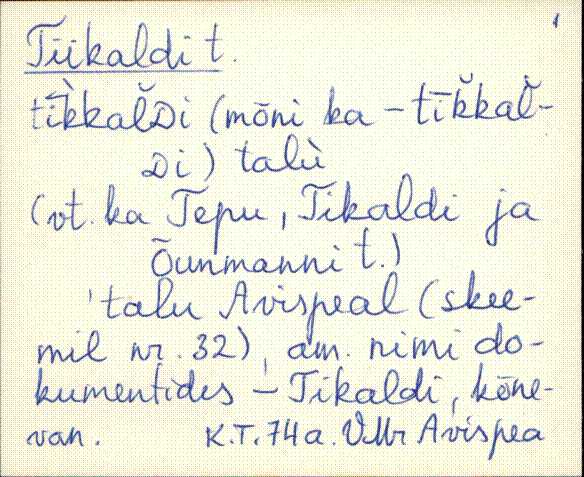 1
Tiikaldi t.
tìkkal̆ᴅi (mõni ka – tīk̆kal̆-
ᴅi) talù
(vt. ka Tepu, Tikaldi ja
Õunmanni t.)
'talu Avispeal (skee-
mil nr. 32), am. nimi do-
kumentides – Tikaldi, kõne-
van. K.T. 74 a. VMr Avispea